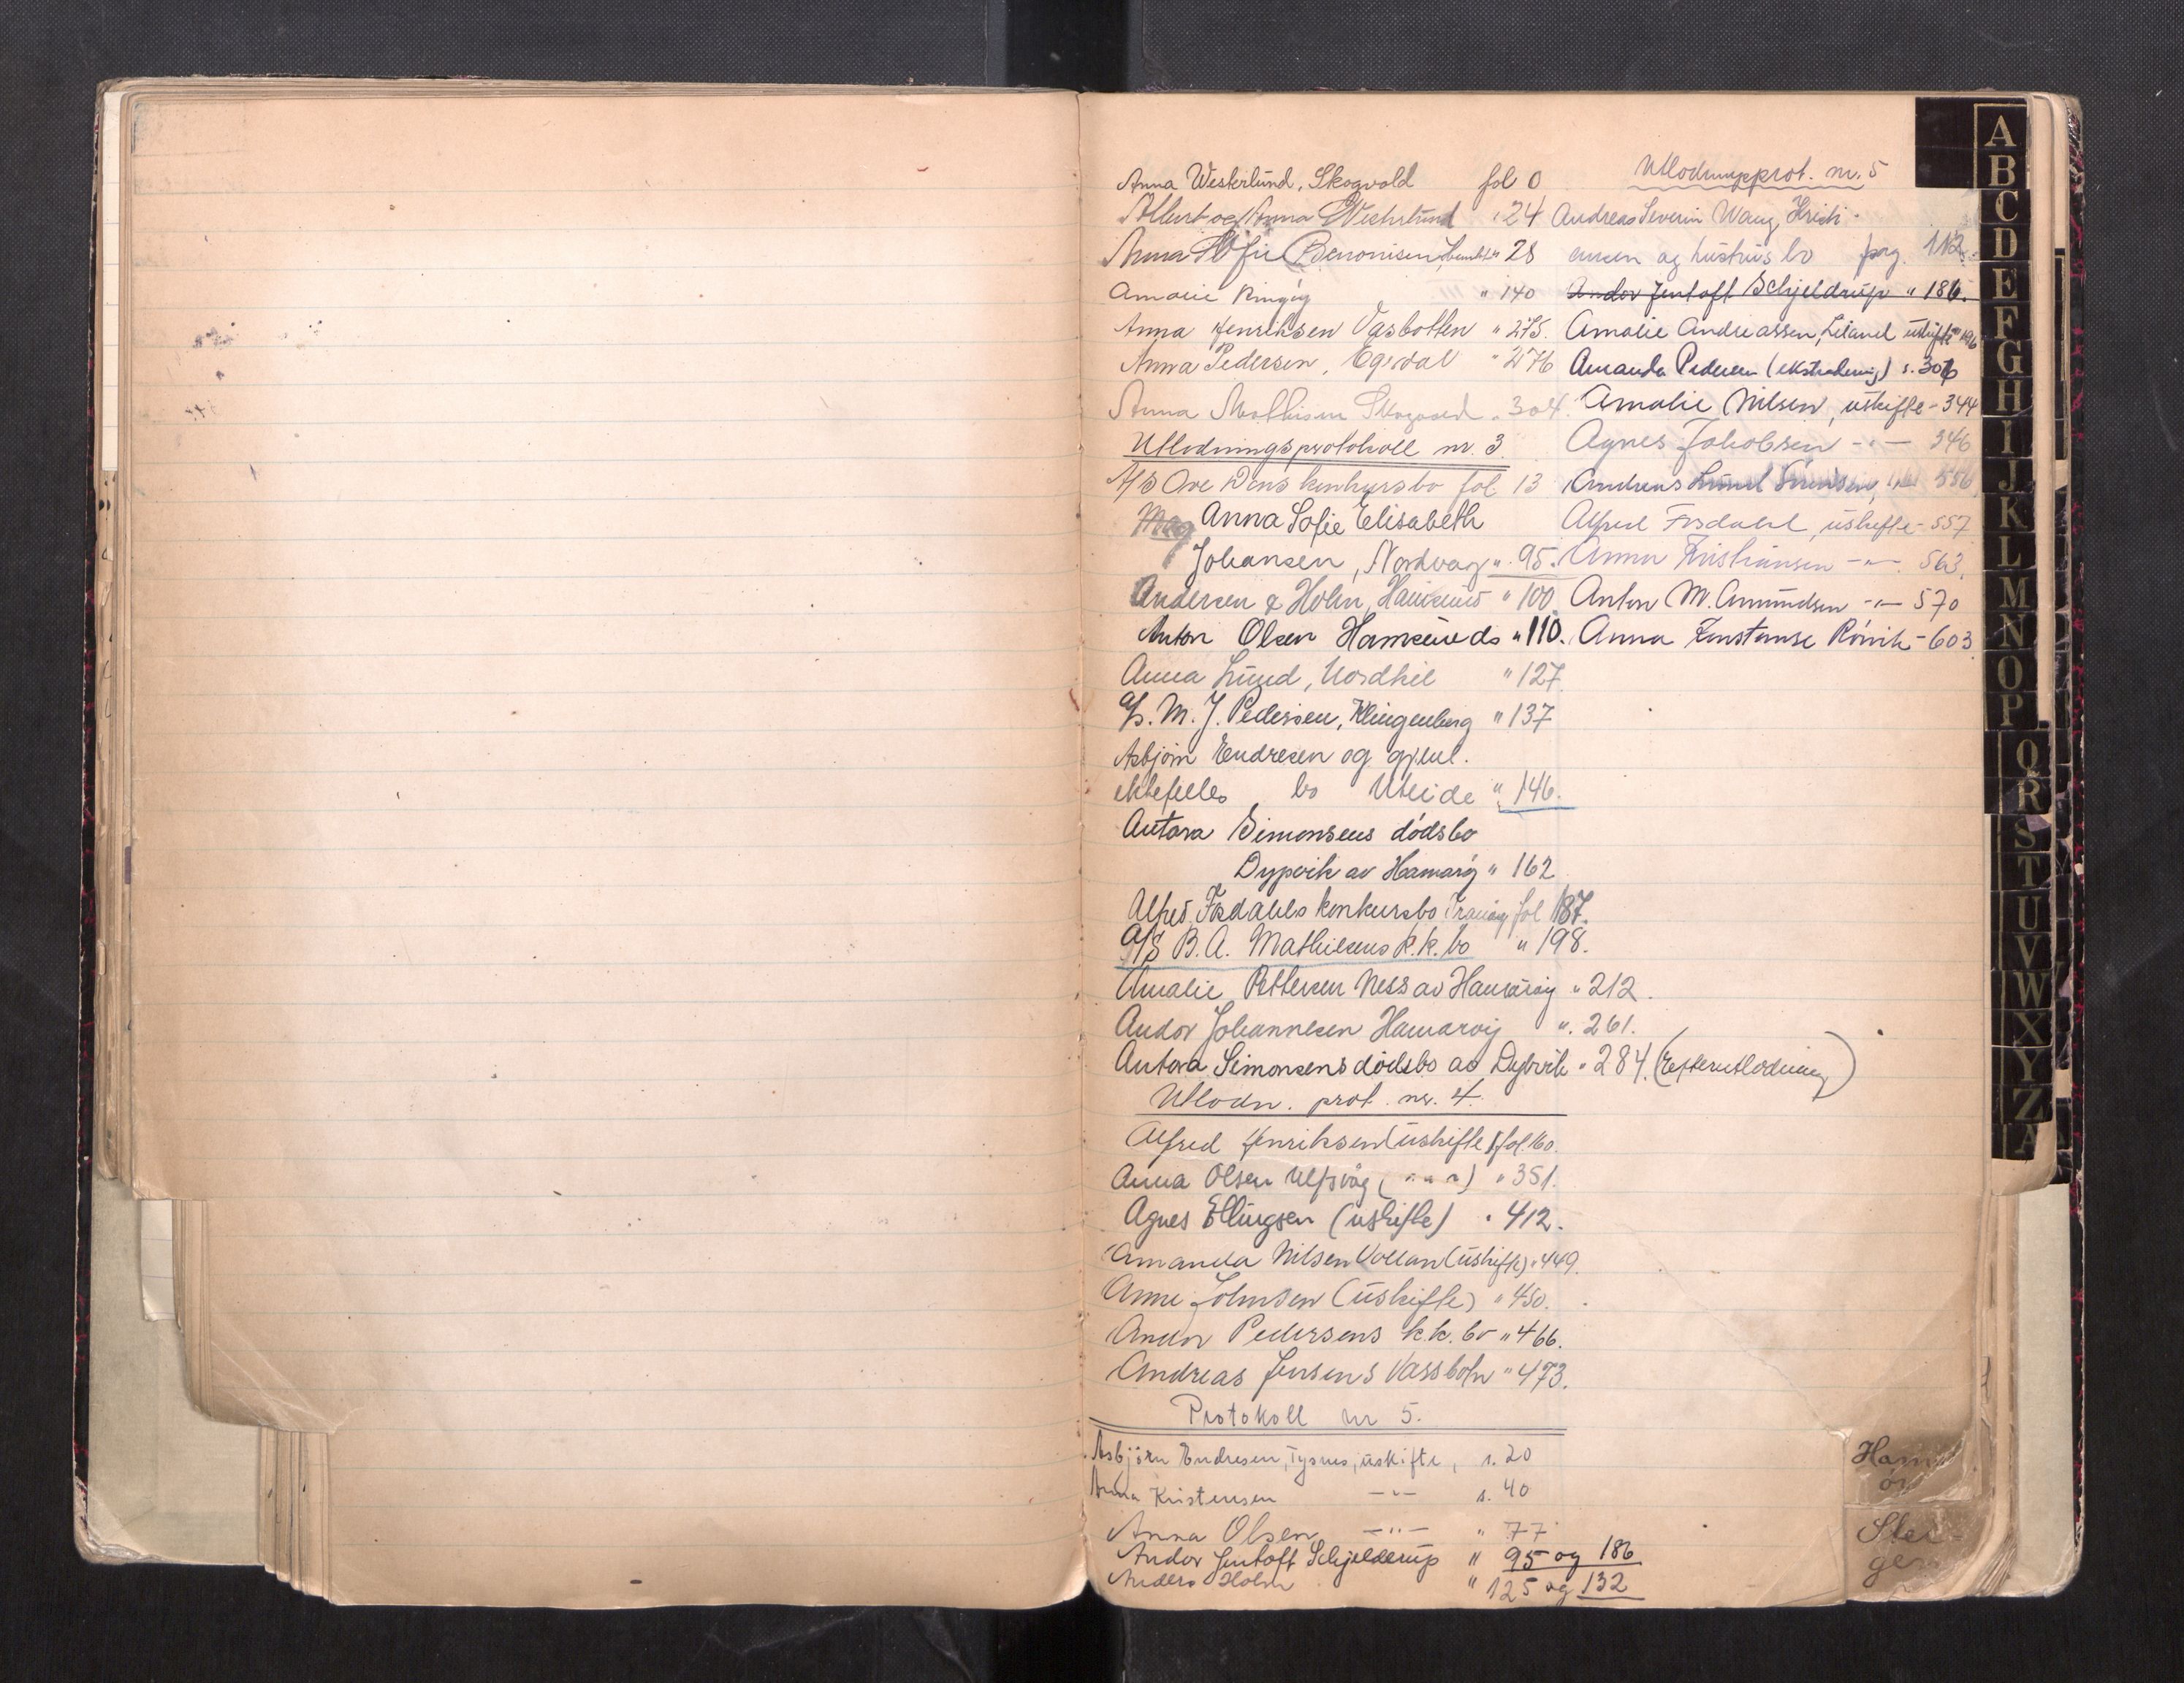 Anna Westerlund, Skogvold fol 0
Albert og Anna Westerlund " 24
Anna Sofie Benonisen, " 28
Amalie Ringøy " 140
Anna Henriksen Vasbotten " 275.
Anna Pedersen, Egsdal " 276
Anna Mathisen Skogvold " 304.
Utlodningsprotokoll nr. 3.
A/S Ove Dens konkursbo fol 13
Anna Sofie Elisabeth
Johansen, Nordvag " 95.
Andersen & Holm, Hamsund " 100
Anton Olsen Hamsunds " 110.
Anna Lund, Nordkil " 127
A/S. M. J. Pedersen, Klingenberg " 137
Asbjørn Endresen og gjenl.
ektefelles bo Uteide " 146.
Antora Simonsens dødsbo
Dypvik av Hamarøy " 162
Alfred Fosdahls konkursbo Tranøy fol 187.
A/S B.A. Mathisens k.k.bo " 198.
Amalie Pettersen Ness av Hamarøy " 212.
Andor Johannesen Hamarøy ". 261.
Antora Simonsens dødsbo av Dybvik " 284. (Efterutlodning)
Utlodn. prot. nr. 4.
Alfred Henriksen (uskifte) fol. 160.
Anna Olsen Ulfsvåg ( " " " ) " 351.
Agnes Ellingsen (uskifte) " 412.
Amanda Nilsen Vollan (uskifte) " 449.
Anne Johnsen (uskifte) " 450.
Andor Pedersens k.k. bo " 466.
Andreas Jensens Vassbotn " 473.
Protokoll nr 5.
Asbjørn Endresen, Tysnes, uskifte, s. 20
Anna Kristensen —"— s. 40
Anna Olsen —"— " 77
Andor Jentoft Schjelderup " 95 og 186
Anders Holm " 125 og 132
Utlodningsprot. nr. 5
Andreas Severin Wang, Kristi-
ansen og hustrus bo pag. 112.
Andor Jentoft Schjeldrup " 186.
Amalie Andreassen, Leland uskifte " 196
Amanda Pedersen (ekstradering) s. 306
Amalie Nilsen, uskifte - 344
Agnes Jakobsen -"- 346
Andreas 556
Alfred Fosdahl, uskifte - 557
Anna Kristiansen -"- 563.
Anton M. Amundsen -"- 570
Anna Konstanse Rånvik - 603
A
B
C
D
E
F
G
H
I
J
K
L
M
N
O
P
Q
R
S
T
U
V
W
X
Y
Z
Å
Ham
ør
Stei
gen